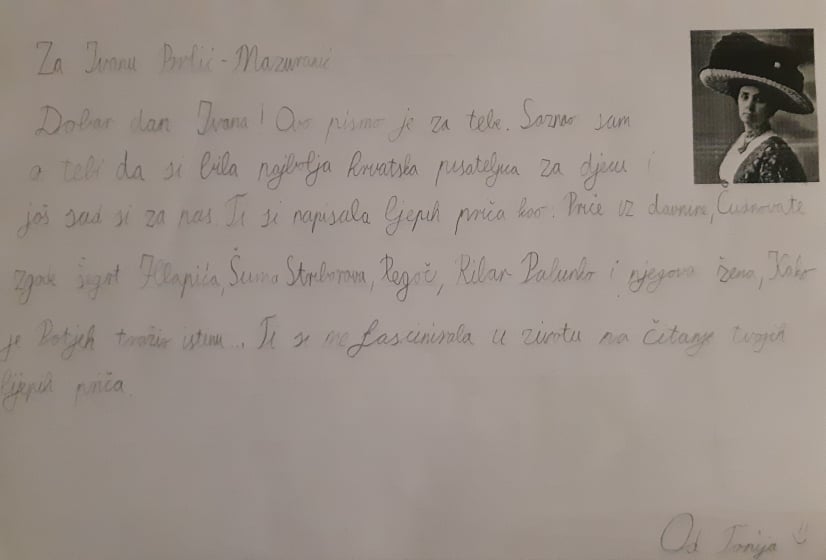 Za Ivanu Brlić-Mažuranić
Dobar dan Ivana! Ovo pismo je za tebe. Saznao sam
o tebi da si bila najbolja hrvatska pisateljica za djecu i
još sad si za nas. Ti si napisala ljepih priča kao: Priče iz davnine, Čusnovate
zgode šegrt Hlapića, Šuma Striborova, Regoč, Ribar Palunko i njegova žena, Kako
je Potjeh tražio istinu... Ti si me fascinirala u životu na čitanje tvojih
ljepih priča.
Od Tonija